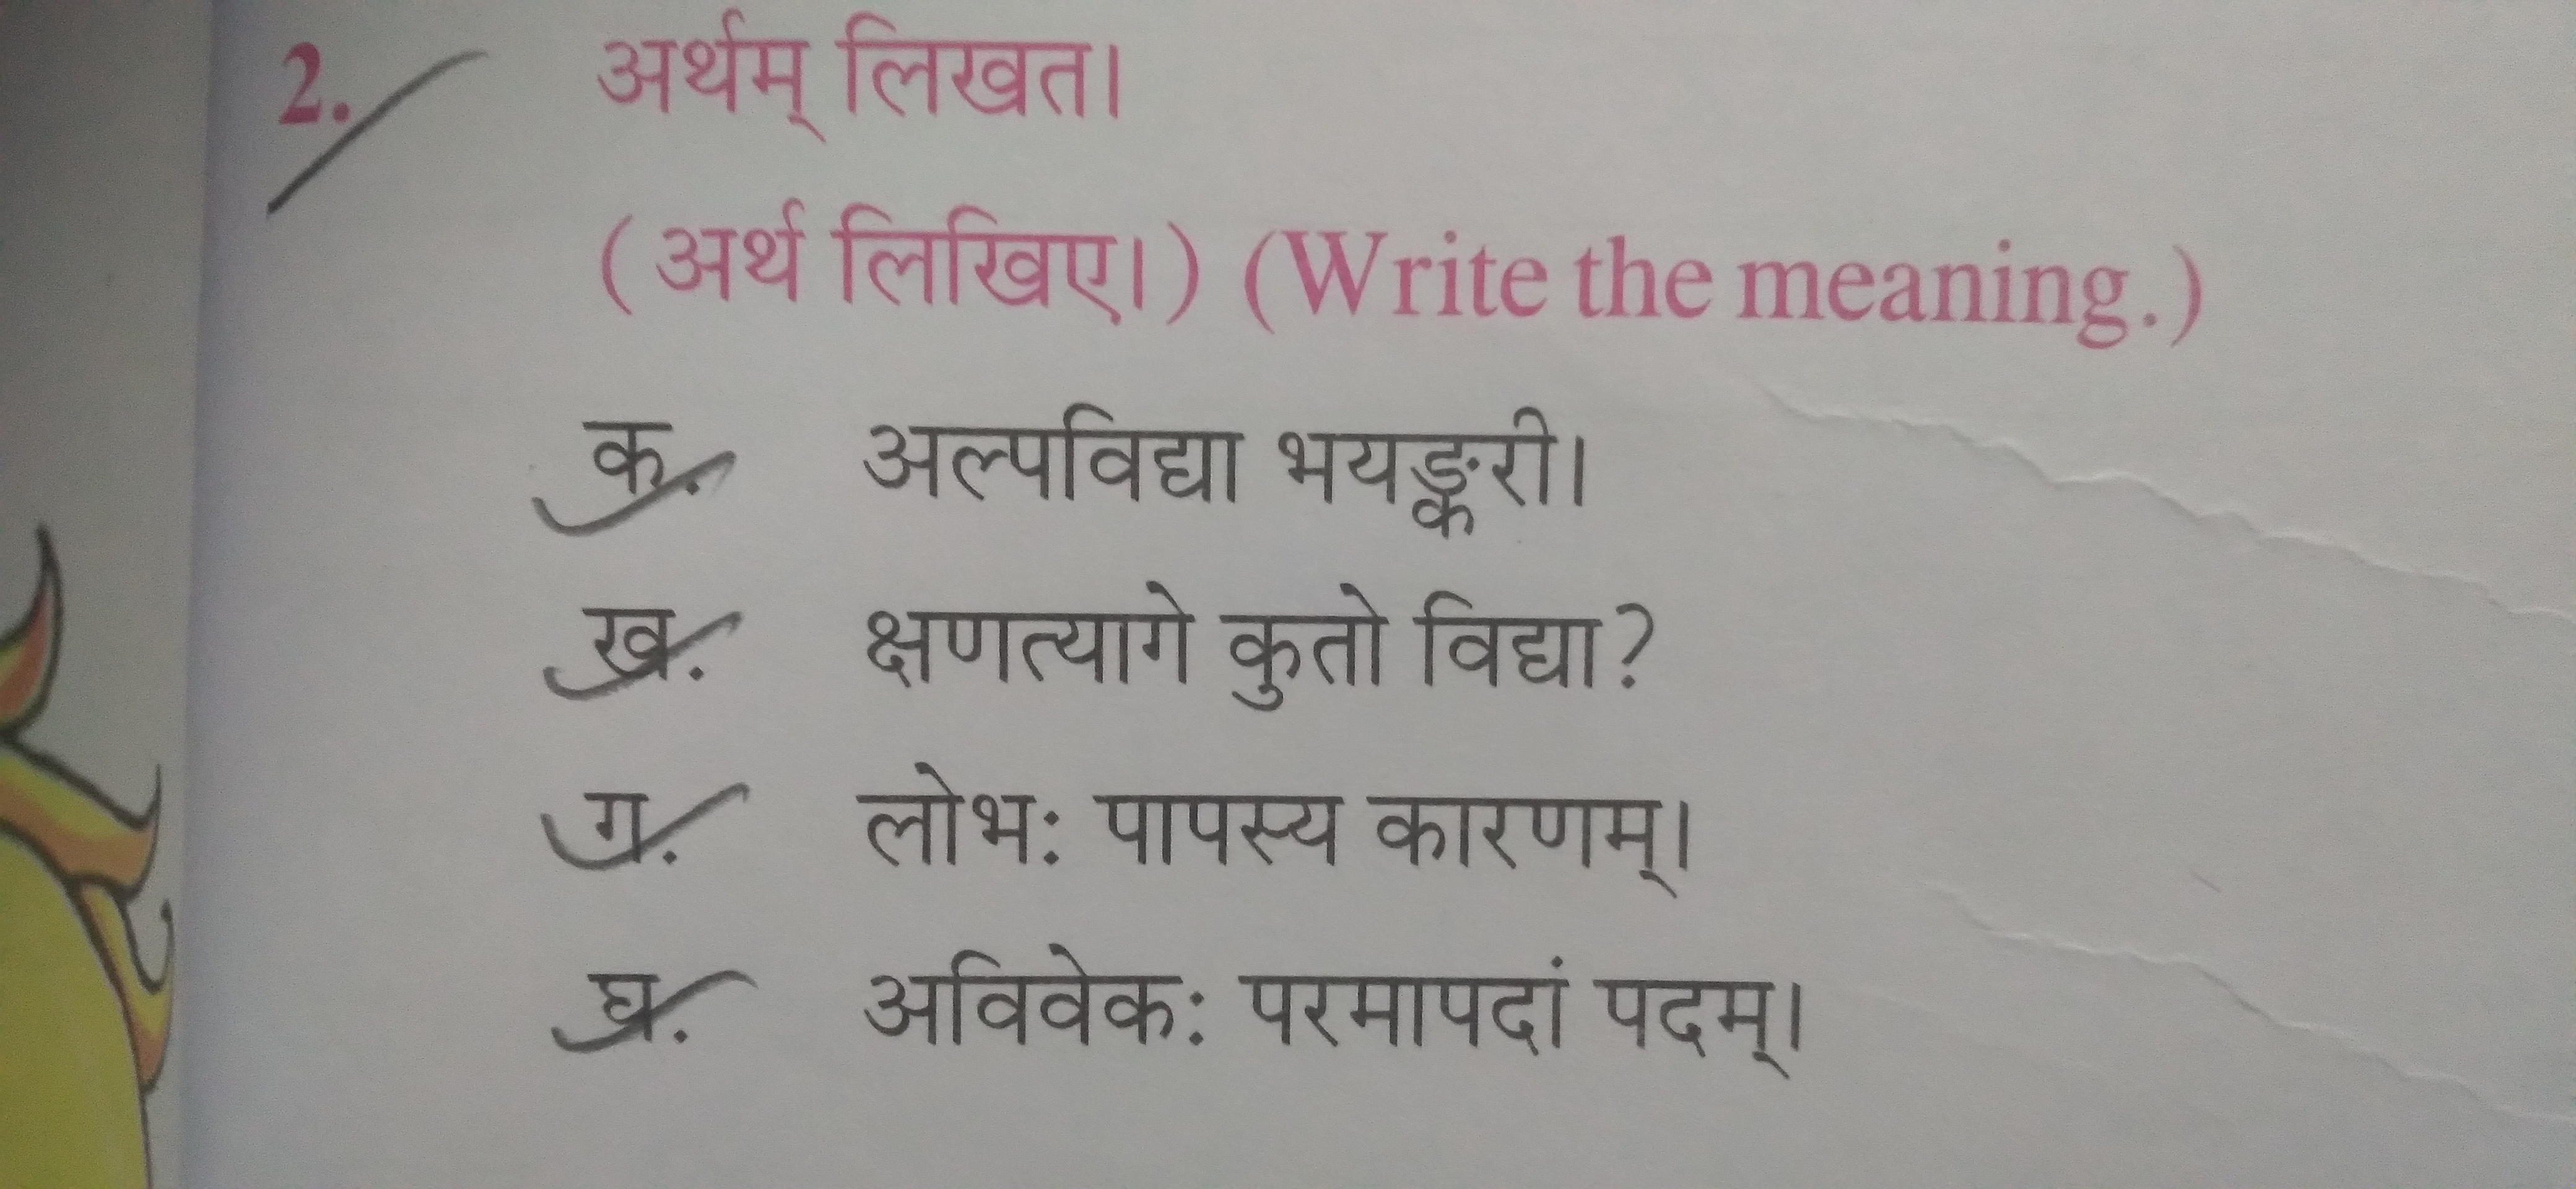 2. अर्थम् लिखत।
(अर्थ लिखिए।) (Write the meaning.)
क. अल्पविद्या भयङ्करी।
ख. क्षणत्यागे कुतो विद्या?
ग. लोभः पापस्य कारणम्।
घ. अविवेकः परमापदां पदम्।